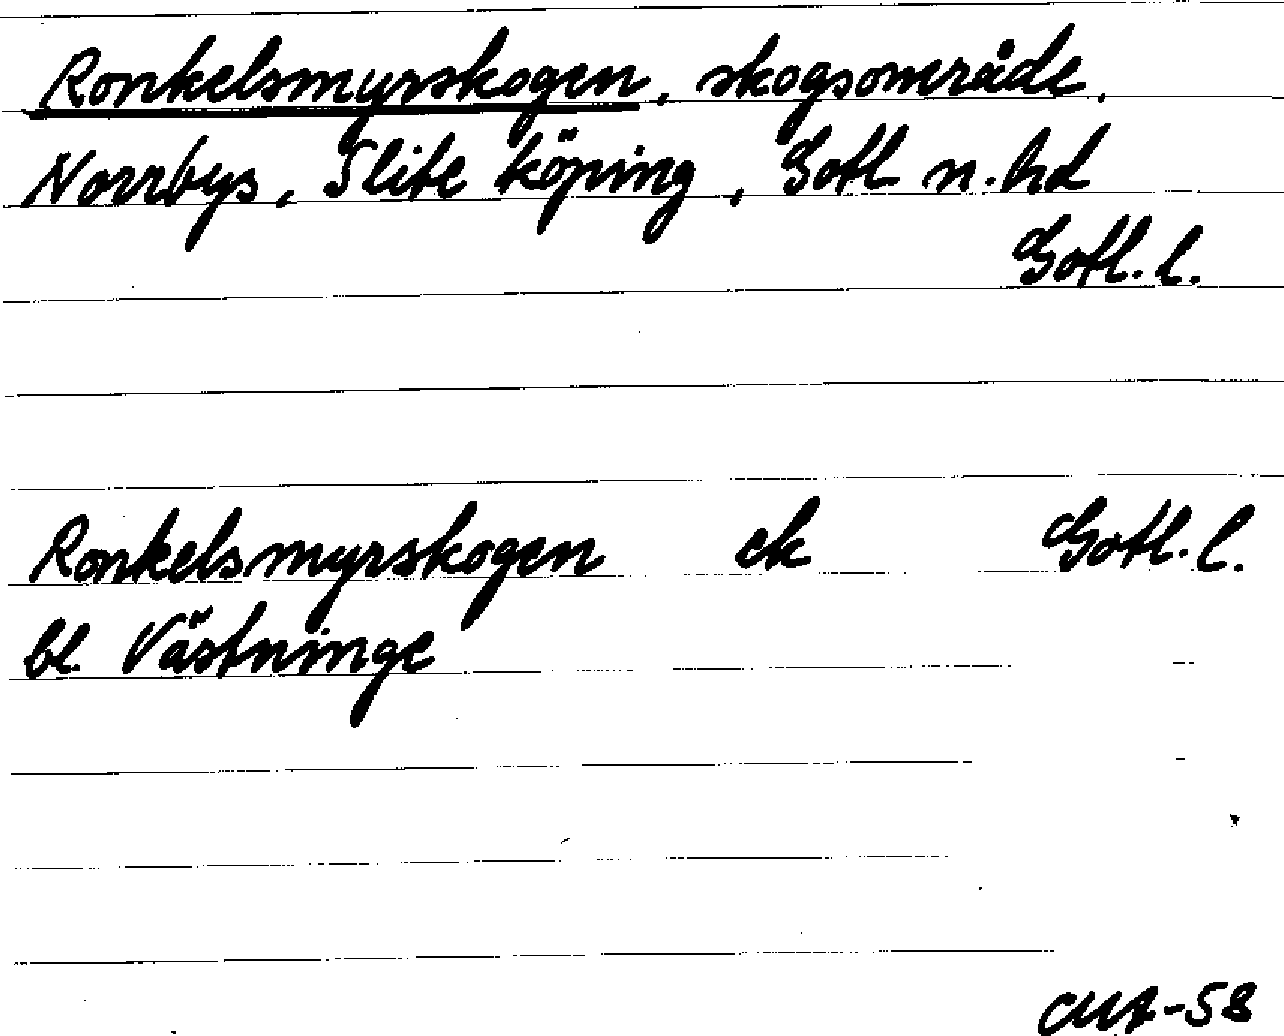 Ronkelsmyrskogen, skogsområde,
Norrbys, Slite köping, Gotl n. hd
Gotl. l.
Ronkelsmyrskogen ek Gotl. l.
bl. Västninge
CMA-58